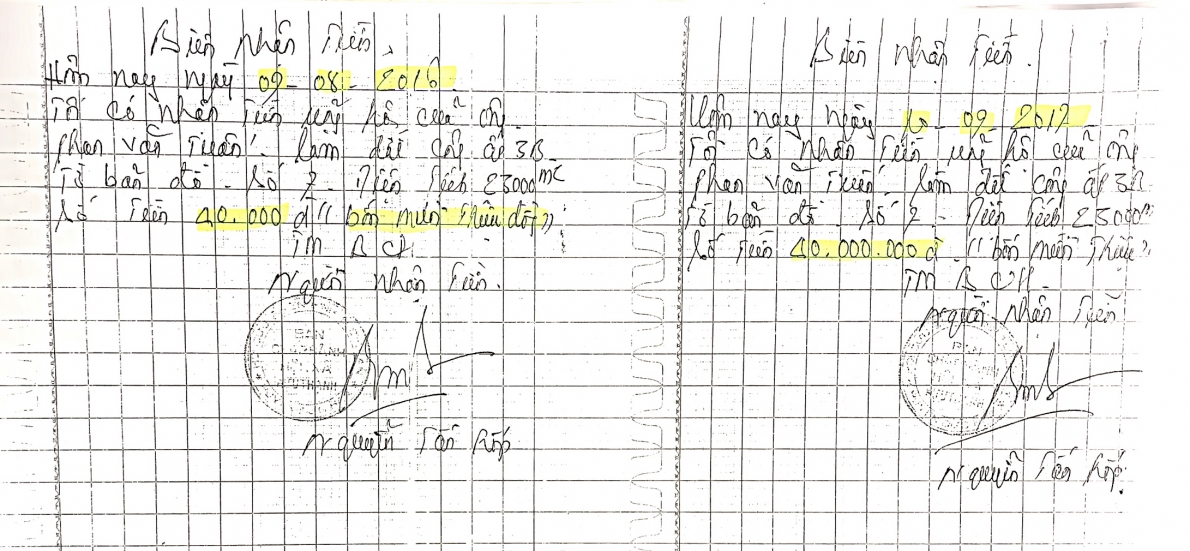 Biên nhận Tiền.
Hôm nay ngày 09-08-2016
Tôi có nhận Tiền ủng hộ của ông
Phan Văn Tuấn làm đất công ấp 3B
Tờ bản đồ số 7 - Diện Tích 25000m2
Số Tiền 40.000 đ "bốn mươi Triệu đồng"
TM BCH
Người Nhận Tiền.
BAN
Nguyễn Tấn
Biên nhận Tiền.
Hôm nay ngày 10-09 2017
Tôi có nhận Tiền ủng hộ của ông
Phan Văn Tuấn làm đất công ấp 3B
Tờ bản đồ số 7 - Diện Tích 25000m
Số Tiền 40.000.000đ "bốn mươi Triệu"
TM BCH -
Người nhận Tiền
BAN
Nguyễn Tấn